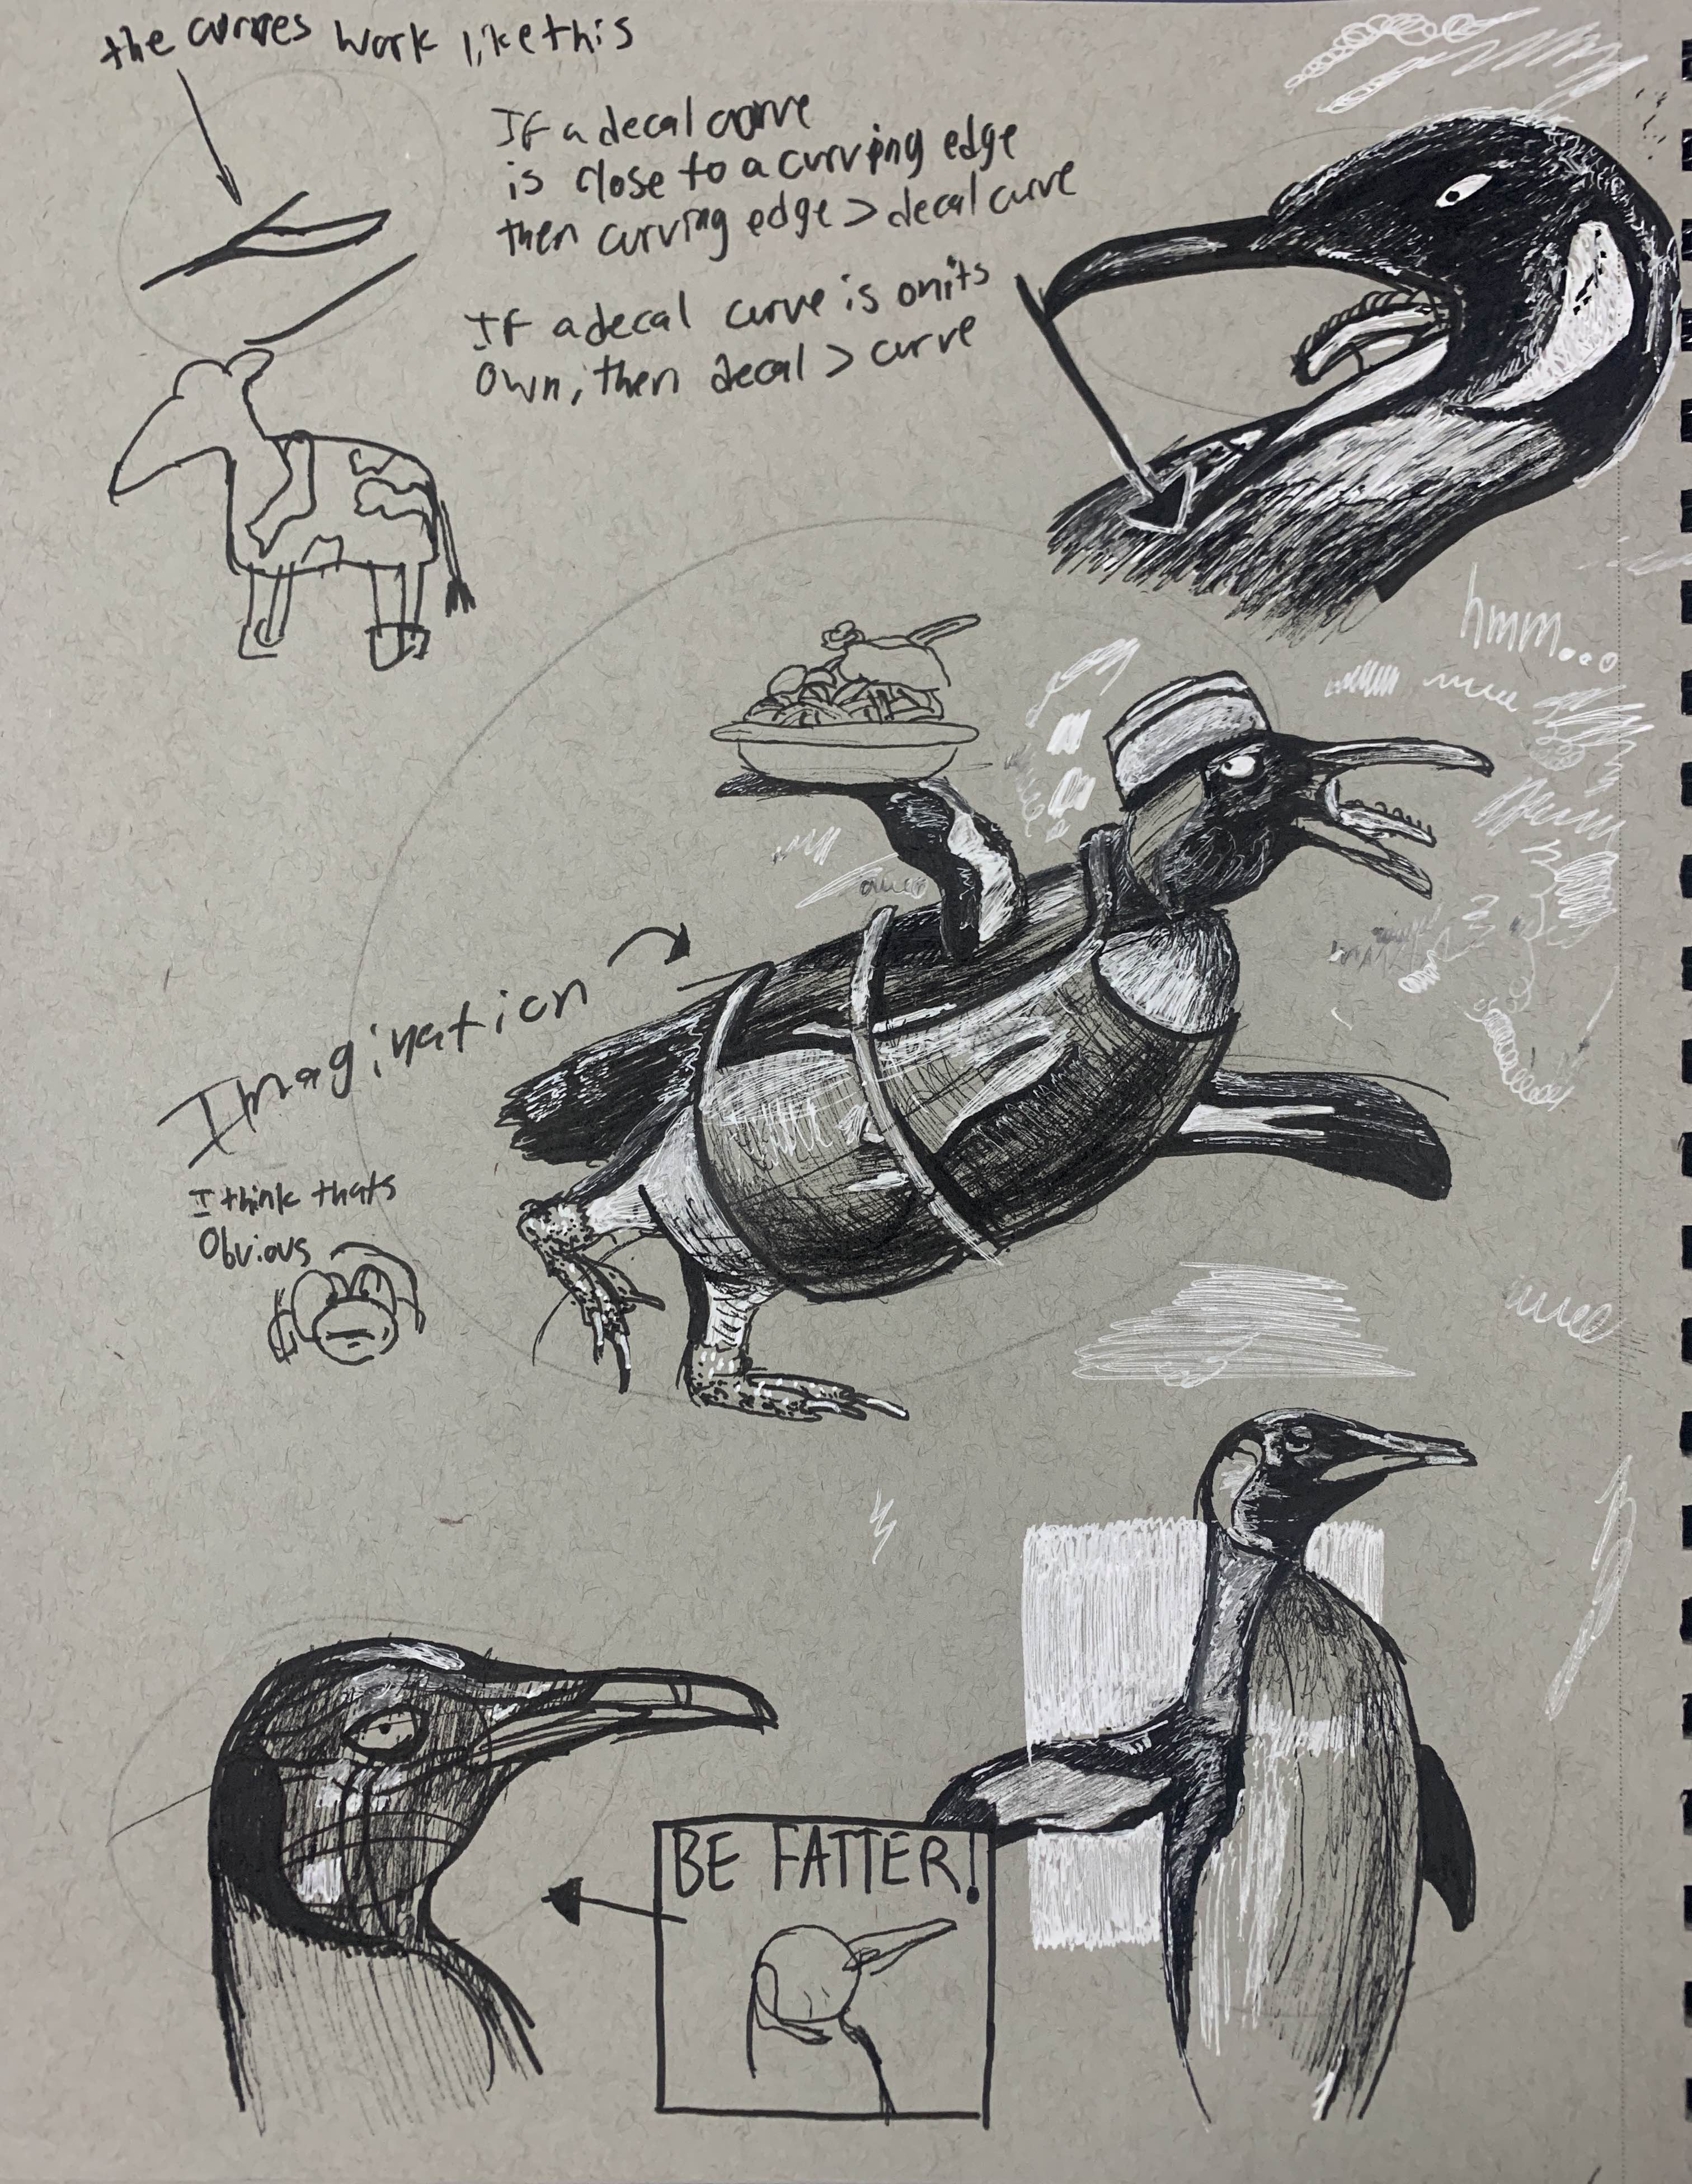 the curves work like this
If a decal curve
is close to a curving edge
then curving edge > decal curve
If a decal curve is on its
own, then decal > curve
hmm...
Imagination
I think thats
Obvious
BE FATTER!